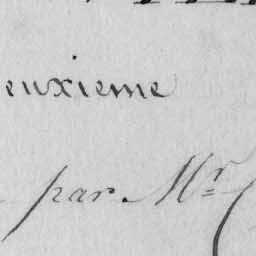 euxieme
par. Mr